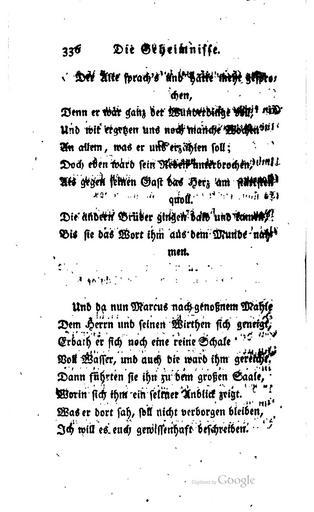 336 Die Geheimnisse.
Der Alte sprach's und hätte mehr gespro-
chen,
Denn er war ganz der Wunderdinge voll,
Und wir ergetzen uns noch manche Wochen
An allem, was er uns erzählen soll;
Doch eben ward sein Reden unterbrochen,
Als gegen seinen Gast das Herz am stärksten
quoll.
Die andern Brüder gingen bald und kamen,
Bis sie das Wort ihm aus dem Munde nah-
men.
Und da nun Marcus nach genoßnem Mahle
Dem Herrn und seinen Wirthen sich geneigt,
Erbath er sich noch eine reine Schale
Voll Wasser, und auch die ward ihm gereicht.
Dann führten sie ihn zu dem großen Saale,
Worin sich ihm ein seltner Anblick zeigt.
Was er dort sah, soll nicht verborgen bleiben,
Ich will es euch gewissenhaft beschreiben.
Digitized by Google